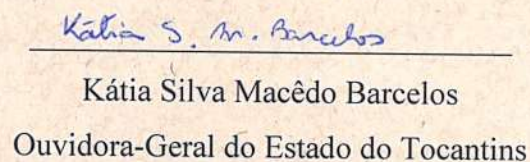 Kátia S. M. Barcelos
Kátia Silva Macêdo Barcelos
Ouvidora-Geral do Estado do Tocantins